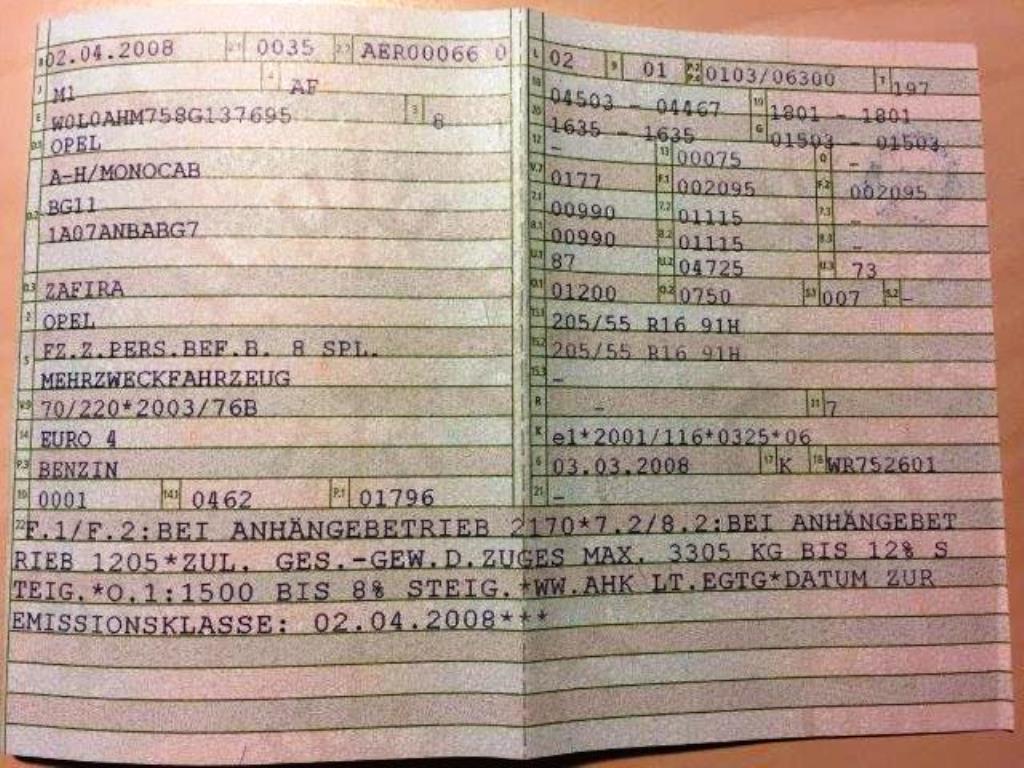 B 02.04.2008 2.1 0035 2.2 AER00066 0
J M1 4 AF
E W0L0AHM758G137695 3 8
D.1 OPEL
A-H/MONOCAB
D.2 BG11
1A07ANBABG7
D.3 ZAFIRA
2 OPEL
5 FZ.Z.PERS.BEF.B. 8 SPL.
MEHRZWECKFAHRZEUG
V.9 70/220*2003/76B
14 EURO 4
P.3 BENZIN
10 0001 14.1 0462 P.1 01796
L 02 9 01 P.2 P.4 0103/06300 T 197
18 04503 - 04467 19 1801 - 1801
20 1635 - 1635 G 01503 - 01503
12 - 13 00075 Q -
V.7 0177 F.1 002095 F.2 002095
7.1 00990 7.2 01115 7.3 -
8.1 00990 8.2 01115 8.3 -
U.1 87 U.2 04725 U.3 73
O.1 01200 O.2 0750 S.1 007 S.2 -
15.1 205/55 R16 91H
15.2 205/55 R16 91H
15.3 -
R - 11 7
K e1*2001/116*0325*06
6 03.03.2008 17 K 16 WR752601
21 -
22 F.1/F.2:BEI ANHÄNGEBETRIEB 2170*7.2/8.2:BEI ANHÄNGEBET
RIEB 1205*ZUL. GES.-GEW.D.ZUGES MAX. 3305 KG BIS 12% S
TEIG.*O.1:1500 BIS 8% STEIG.*WW.AHK LT.EGTG*DATUM ZUR
EMISSIONSKLASSE: 02.04.2008***